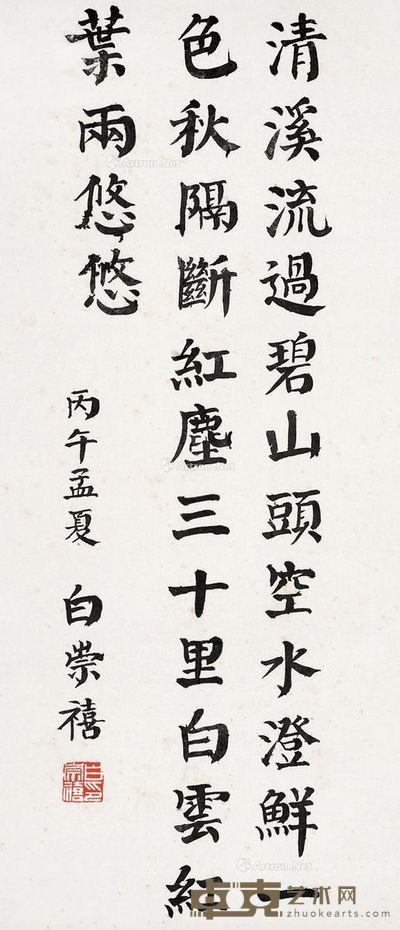 清溪流過碧山頭空水澄鮮一
色秋隔斷紅塵三十里白雲紅
葉兩悠悠
丙午孟夏 白崇禧
Artron.Net
Artron.Net
Artron.Net
卓克艺术网
zhuokearts.com